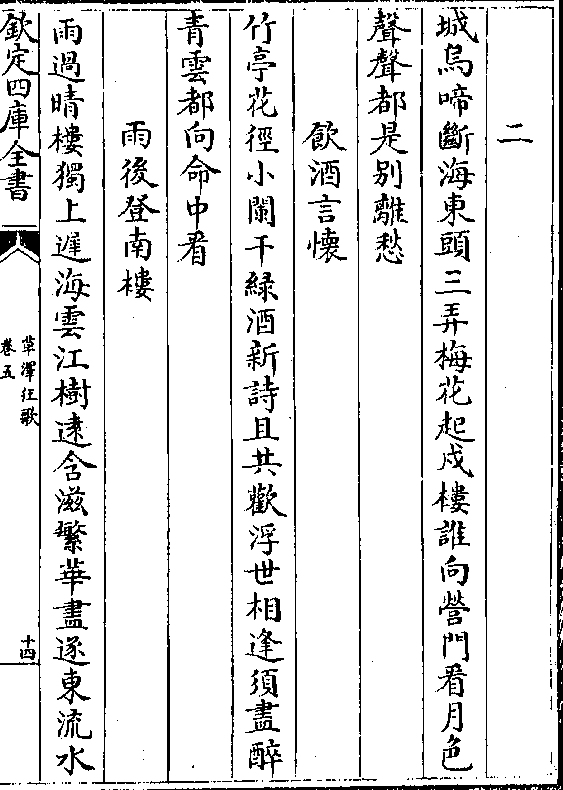 二
城烏啼斷海東頭三弄梅花起戍樓誰向營門看月色
聲聲都是别離愁
飲酒言懷
竹亭花徑小闌干緑酒新詩且共歡浮世相逢須盡醉
青雲都向命中看
雨後登南樓
雨過晴樓獨上遲海雲江樹逺含滋繁華盡逐東流水
欽定四庫全書
草澤狂歌
卷五
十四